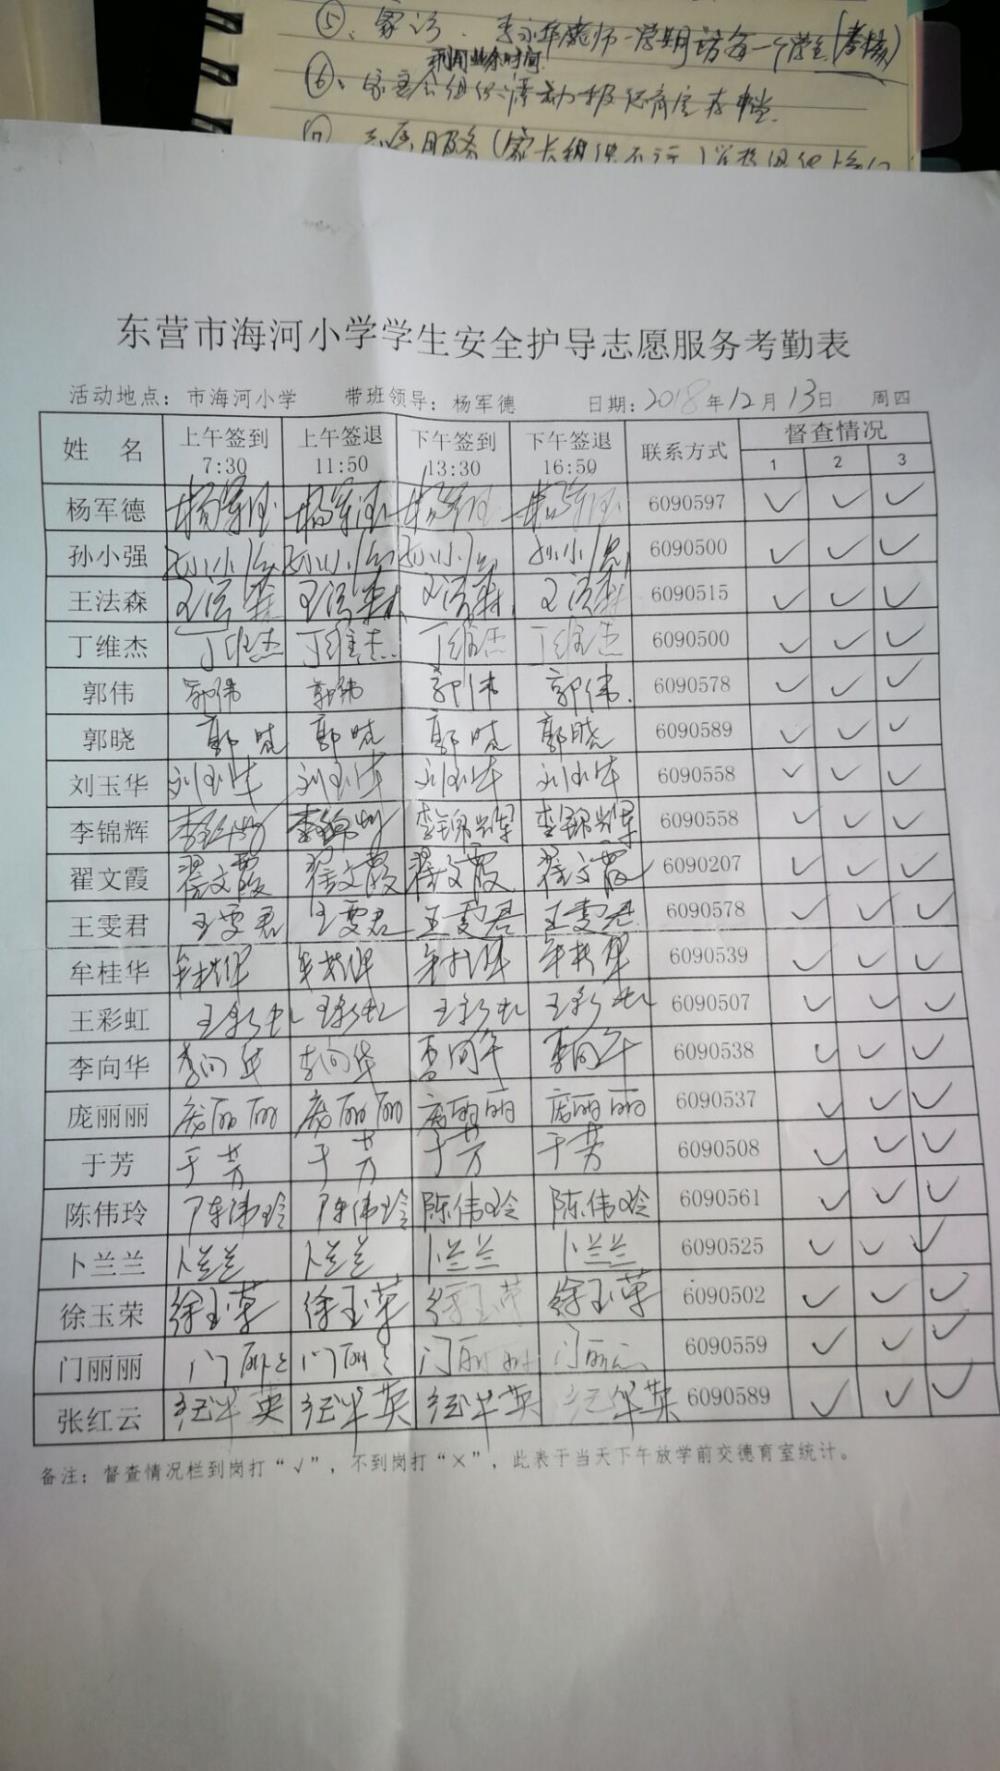 ⑤、家访.
⑥、
利用业余时间
东营市海河小学学生安全护导志愿服务考勤表
活动地点：市海河小学 带班领导：杨军德 日期：2018年12月13日 周四
姓 名 上午签到 7:30 上午签退 11:50 下午签到 13:30 下午签退 16:50 联系方式 督查情况 1 2 3
杨军德 杨军德 杨军德 杨军德 杨军德 6090597 ✓ ✓ ✓
孙小强 孙小强 孙小强 孙小强 孙小强 6090500 ✓ ✓ ✓
王法森 王法森 王法森 王法森 王法森 6090515 ✓ ✓ ✓
丁维杰 丁维杰 丁维杰 丁维杰 丁维杰 6090500 ✓ ✓ ✓
郭伟 郭伟 郭伟 郭伟 郭伟 6090578 ✓ ✓ ✓
郭晓 郭晓 郭晓 郭晓 郭晓 6090589 ✓ ✓ ✓
刘玉华 刘玉华 刘玉华 刘玉华 刘玉华 6090558 ✓ ✓ ✓
李锦辉 李锦辉 李锦辉 李锦辉 李锦辉 6090558 ✓ ✓ ✓
翟文霞 翟文霞 翟文霞 翟文霞 翟文霞 6090207 ✓ ✓ ✓
王雯君 王雯君 王雯君 王雯君 王雯君 6090578 ✓ ✓ ✓
牟桂华 牟桂华 牟桂华 牟桂华 牟桂华 6090539 ✓ ✓ ✓
王彩虹 王彩虹 王彩虹 王彩虹 王彩虹 6090507 ✓ ✓ ✓
李向华 李向华 李向华 李向华 李向华 6090538 ✓ ✓ ✓
庞丽丽 庞丽丽 庞丽丽 庞丽丽 庞丽丽 6090537 ✓ ✓ ✓
于芳 于芳 于芳 于芳 于芳 6090508 ✓ ✓ ✓
陈伟玲 陈伟玲 陈伟玲 陈伟玲 陈伟玲 6090561 ✓ ✓ ✓
卜兰兰 卜兰兰 卜兰兰 卜兰兰 卜兰兰 6090525 ✓ ✓ ✓
徐玉荣 徐玉荣 徐玉荣 徐玉荣 徐玉荣 6090502 ✓ ✓ ✓
门丽丽 门丽丽 门丽丽 门丽丽 门丽丽 6090559 ✓ ✓ ✓
张红云 6090589 ✓ ✓ ✓
备注：督查情况栏到岗打“√”，不到岗打“×”，此表于当天下午放学前交德育室统计。